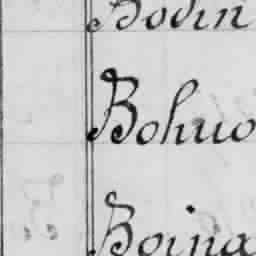 Bodin
Bohuo
Boina